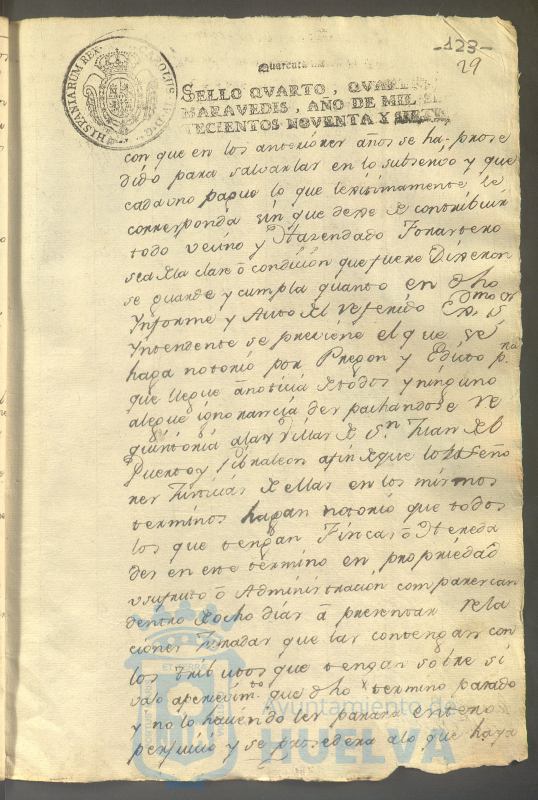 -123-
29
HISPANIARUM REX CAROLUS IV D G
Quarenta
SELLO QVARTO, QVAR
MARAVEDIS, AÑO DE MIL SE
TECIENTOS NOVENTA Y
con que en los anteriores años se ha prose
dido para salvarlar en lo subsesivo y que
cada uno pague lo que lexitimamente le
corresponda sin que dexe de contribuir
todo vecino y Hazendado Forastero
sea de la clase ô condicion que fuere Dixeron
se guarde y cumpla quanto en dho
Ynforme y Auto del referido Exmo Sr
Yntendente se previene el que se
haga notorio por Pregon y Edicto pra
que llegue à noticia de todos y ninguno
alegue ignorancia despachandose re
quisitoria a las Villas de Sn Juan del
Puerto y Gibraleon a fin de que los Seño
res Justicias de ellas en los mismos
terminos hagan notorio que todos
los que tengan Fincas ô Hereda
des en este termino en propriedad
usufruto ô Administracion comparezcan
dentro de ocho dias â presentar rela
ciones Juradas que las contengan con
los tributos que tengan sobre si
vajo apersevimto que dho termino pasado
y no lo haviendo les parara entero
perjuicio y se prosedera a lo que haya
Ayuntamiento de
HUELVA